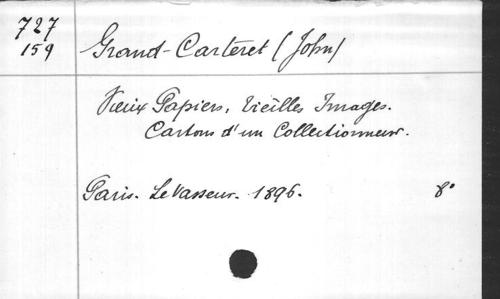 727
159
Grand-Carteret (John)
Vieux Papiers, Vieilles Images.
Cartons d'un Collectionneur.
Paris. Le Vasseur. 1896. 8°